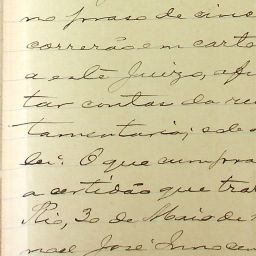 no praso de cinc
correrão em carto
a este Juizo, a fi
tar contas da
tamentaria; e de
lei". O que cumpra
a certidão que tra
Rio, 30 de Maio de
noel José Innocen